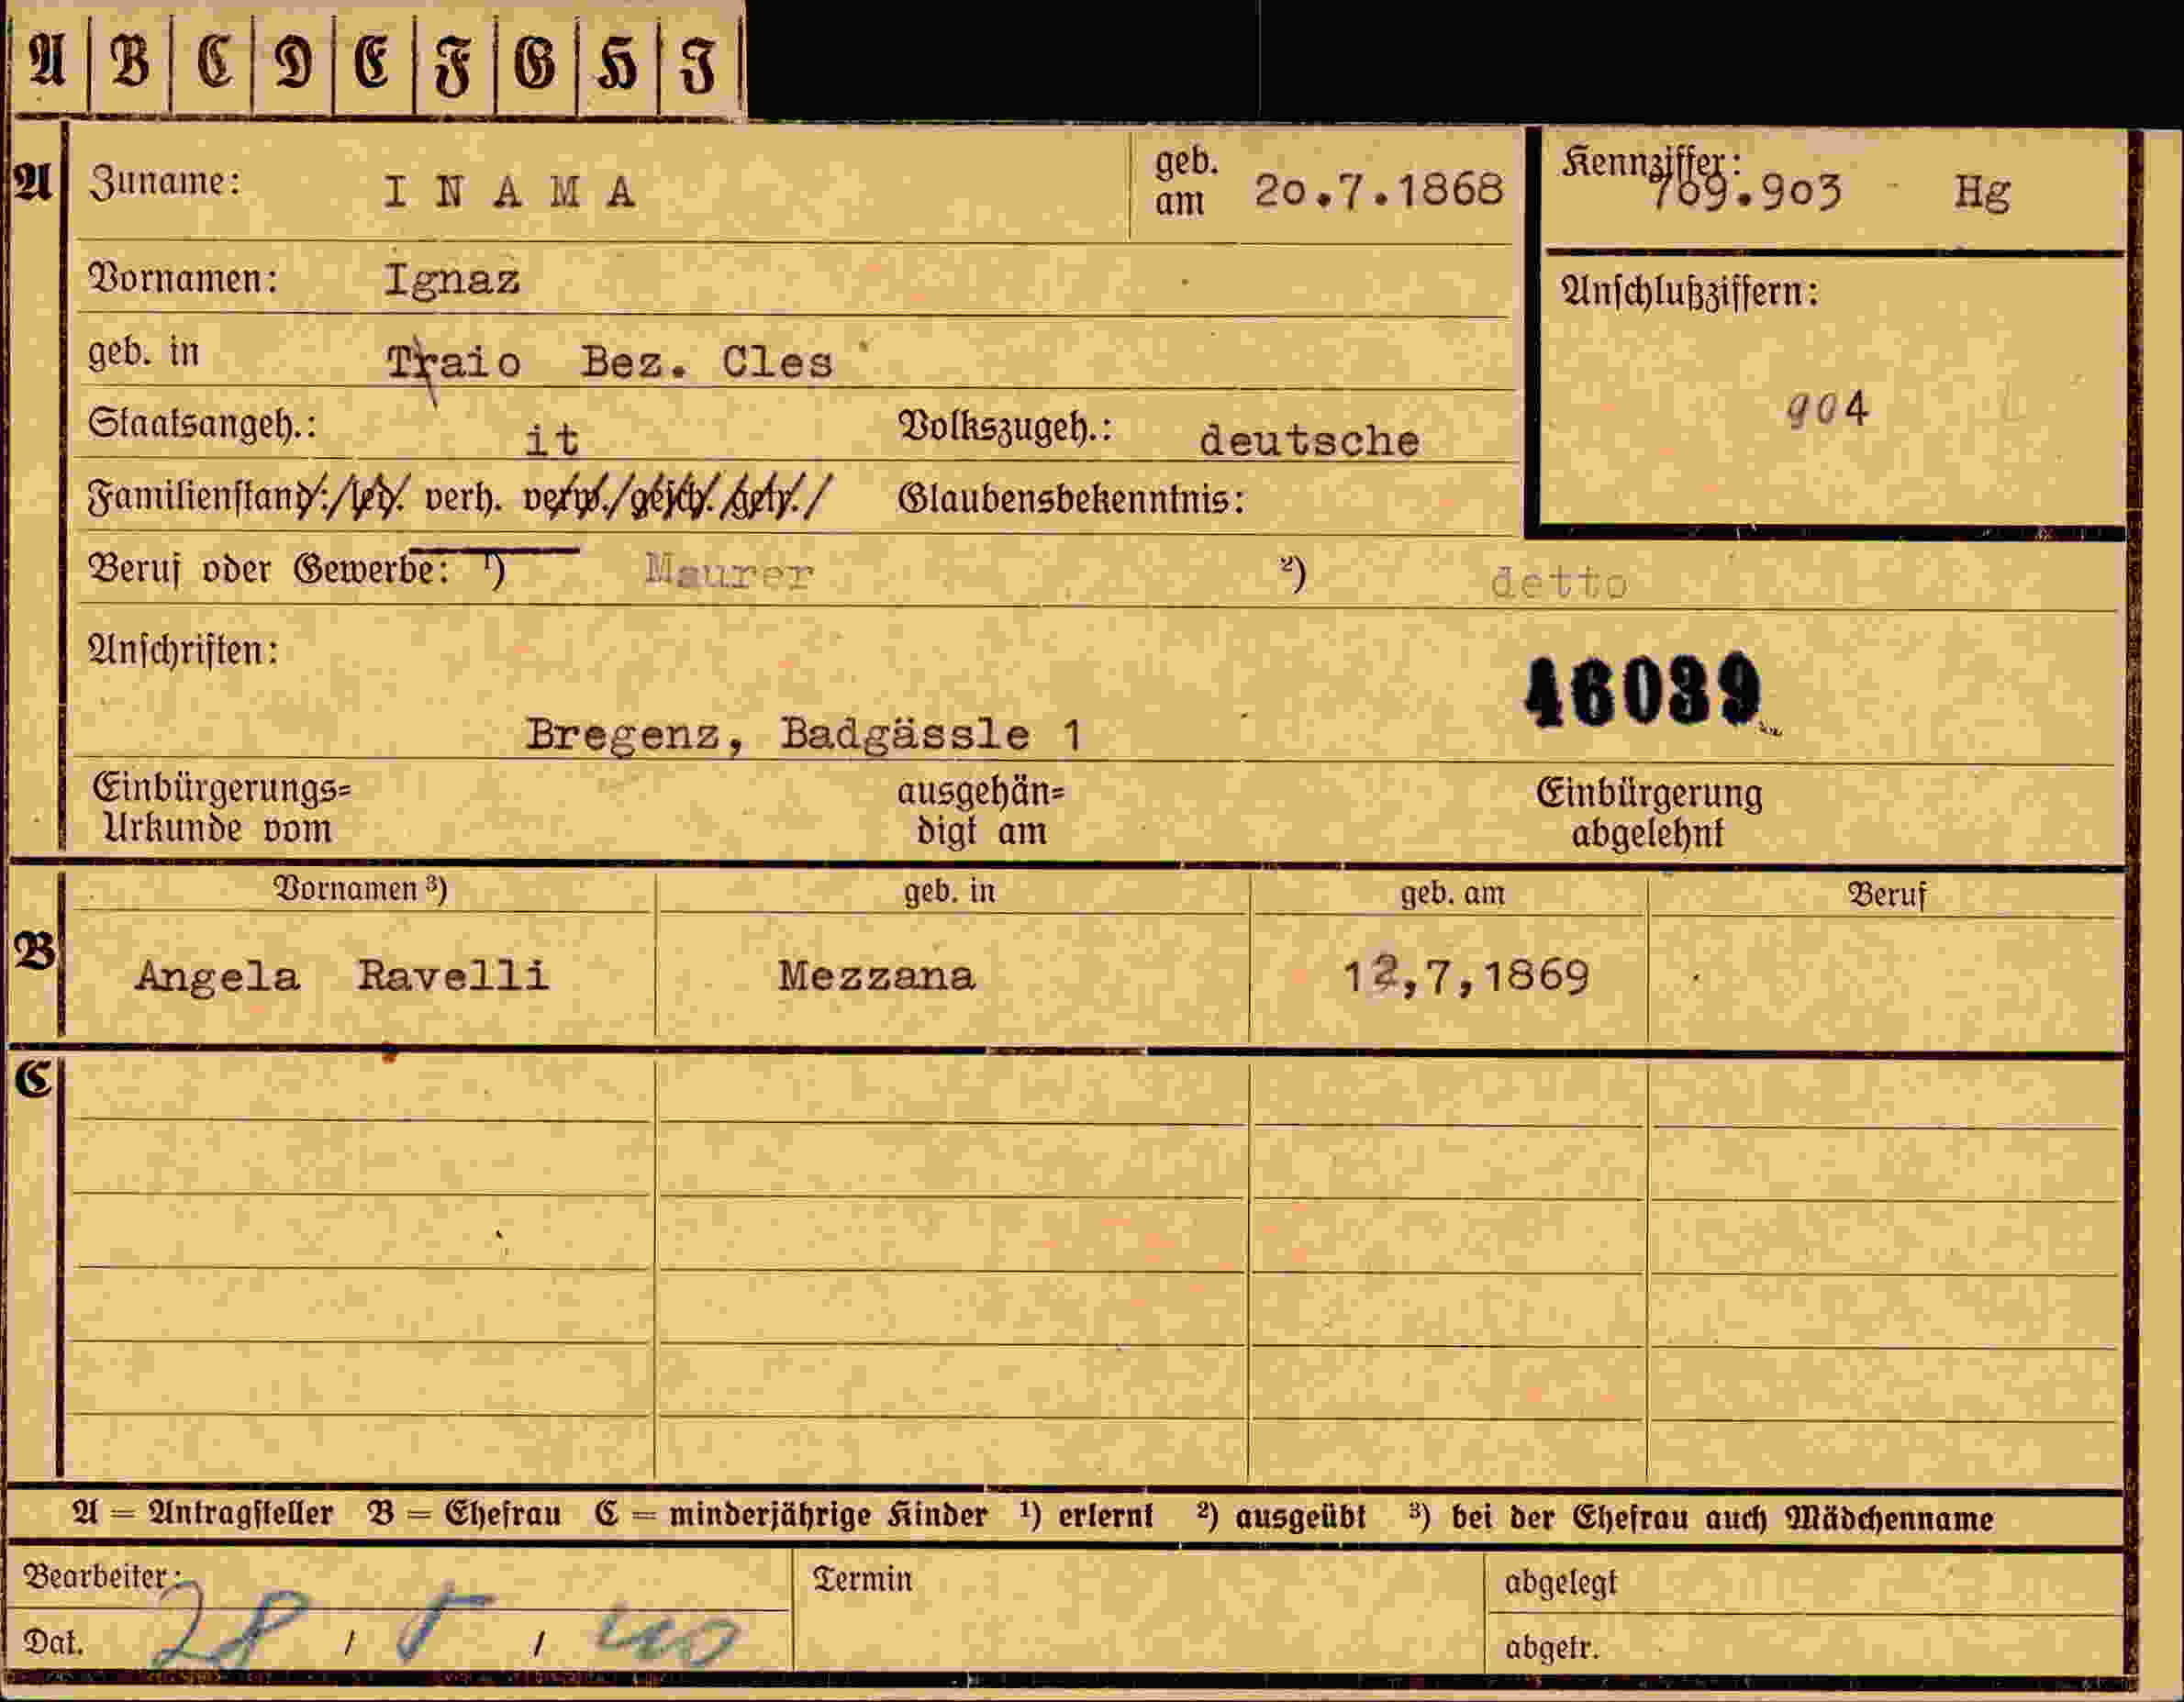 A B C D E F G H I
A Zuname: INAMA geb. am 20.7.1868 Kennziffer: 769.903 Hg
Vornamen: Ignaz Anschlußziffern:
geb. in Traio Bez. Cles
904
Staatsangeh.: it Volkszugeh.: deutsche
Familienstand: led. verh. verw. gesch. getr. Glaubensbekenntnis:
Beruf oder Gewerbe: ¹) Maurer ²) detto
Anschriften:
46039
Bregenz, Badgässle 1
Einbürgerungs= ausgehän= Einbürgerung
Urkunde vom digt am abgelehnt
Vornamen ³) geb. in geb. am Beruf
B Angela Ravelli Mezzana 12,7,1869
C
A = Antragsteller B = Ehefrau C = minderjährige Kinder ¹) erlernt ²) ausgeübt ³) bei der Ehefrau auch Mädchenname
Bearbeiter: Termin abgelegt
Dat. 28 / 5 / 40 abgetr.